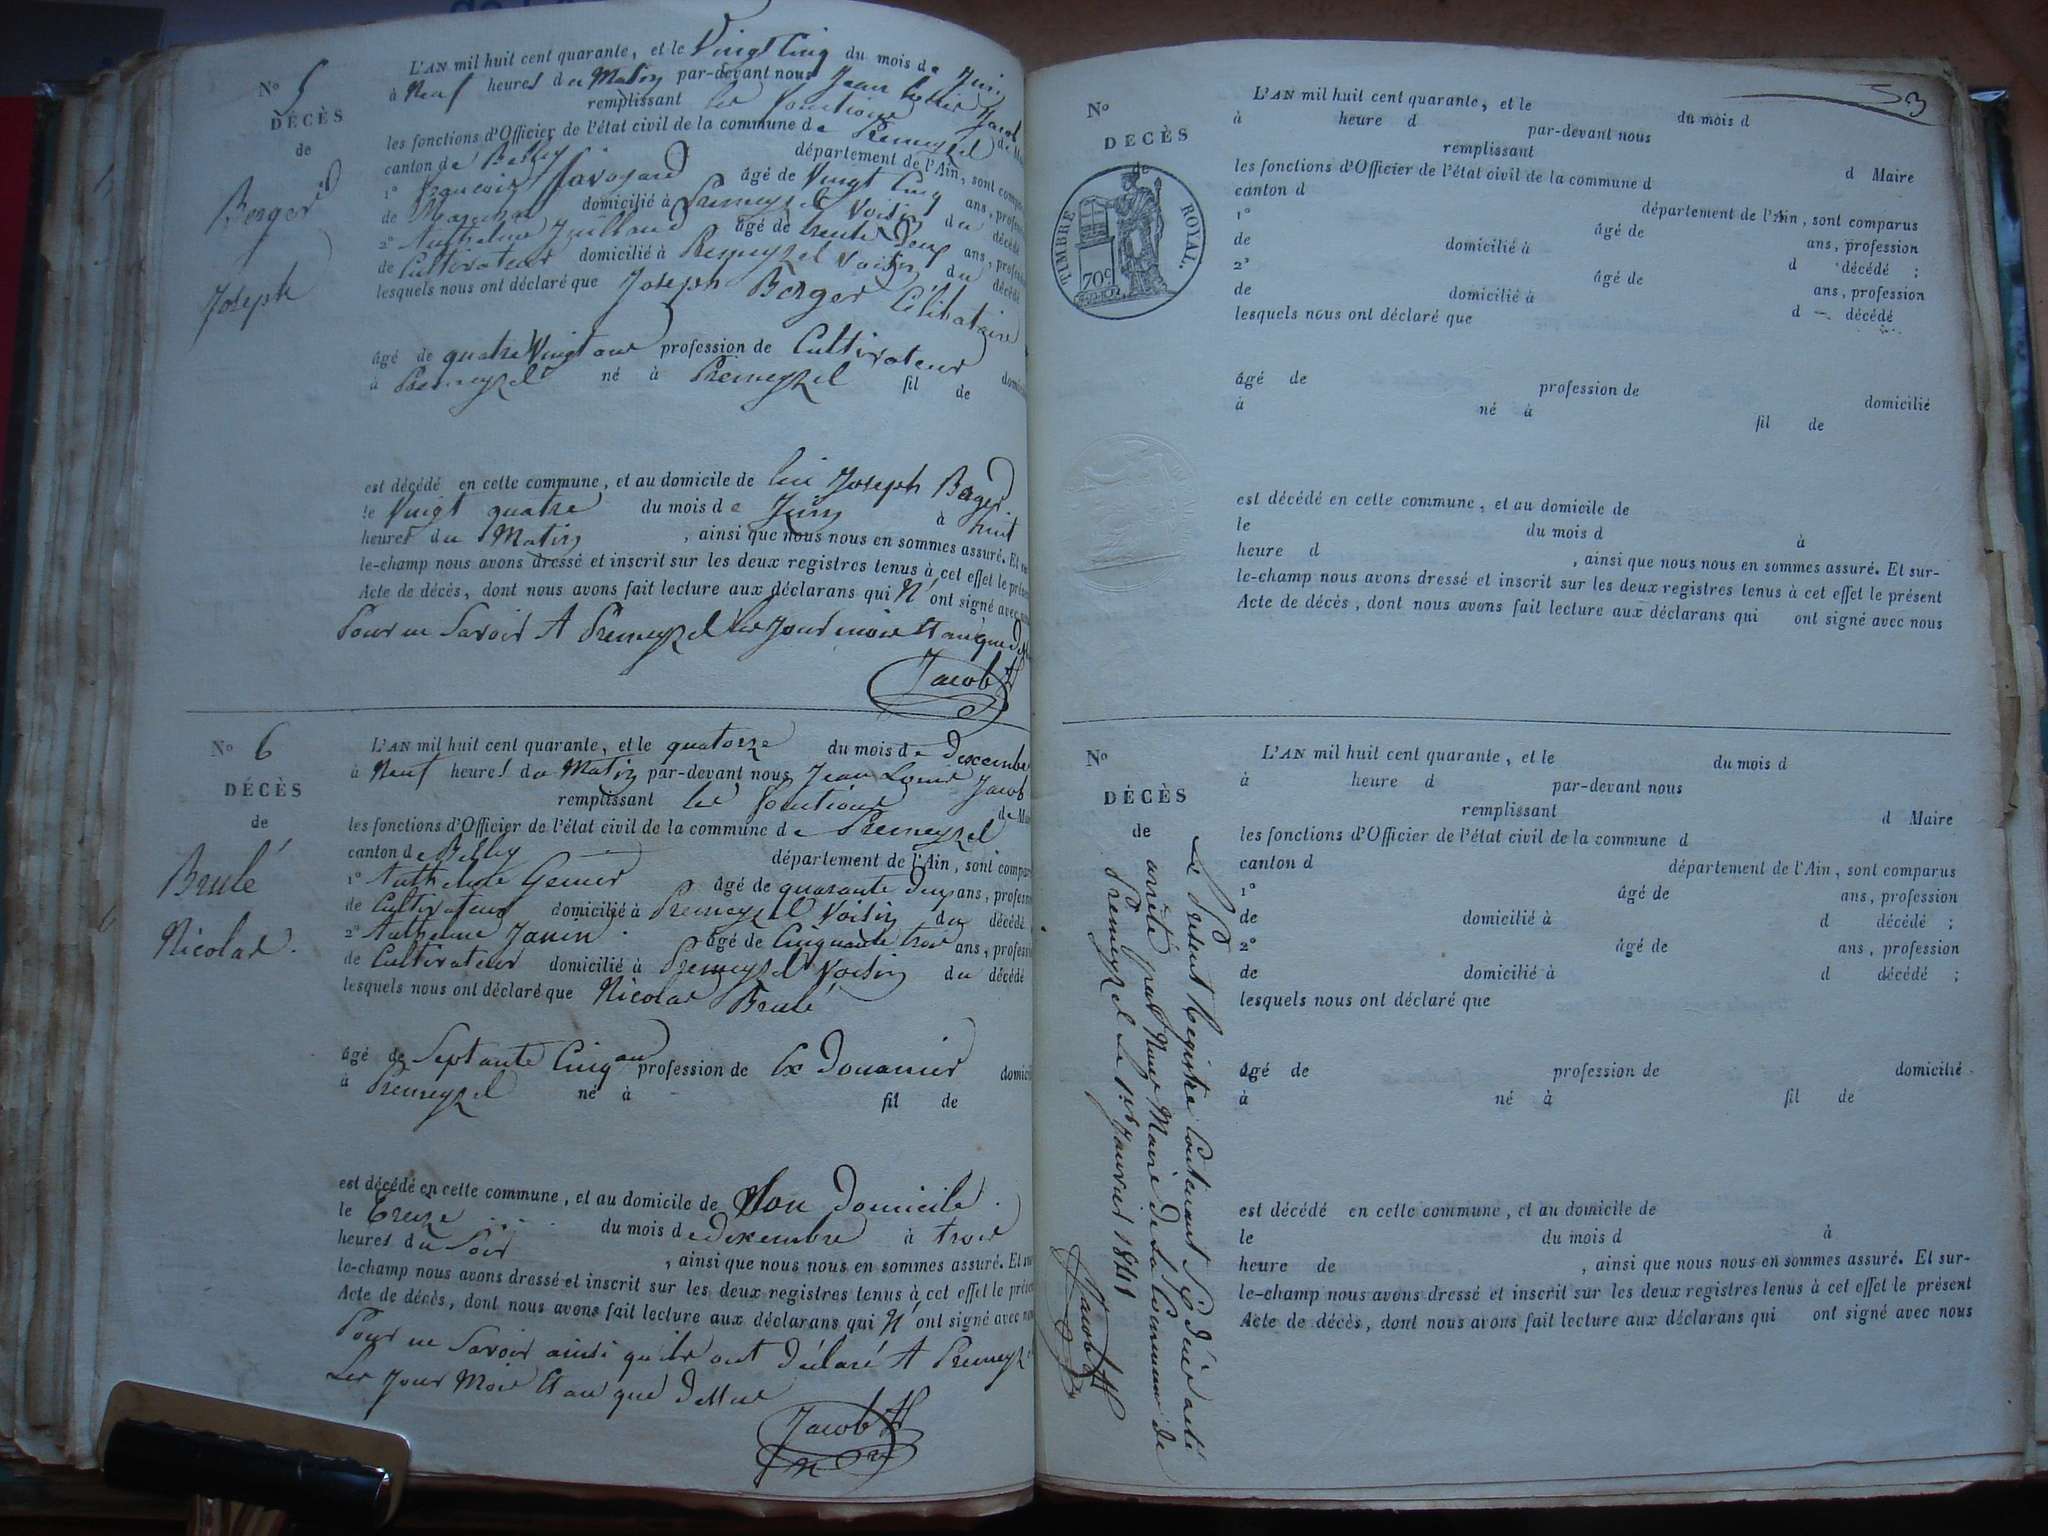 N° 5
DÉCÈS
de
Berger
Joseph
L'AN mil huit cent quarante, et le Vingt Cinq du mois de Juin
à Neuf heures du Matin par-devant nous Jean Louis Jacob
remplissant les fonctions de
les fonctions d'Officier de l'état civil de la commune de Premeyzel
canton de Belley département de l'Ain, sont
1° François Savoyard âgé de Vingt Cinq ans,
de domicilié à Premeyzel Voisin du décédé
2° Anthelme Juilland âgé de trente ans,
de Cultivateur domicilié à Premeyzel Voisin du décédé
lesquels nous ont déclaré que Joseph Berger Célibataire
âgé de quatre Vingt ans profession de Cultivateur
à Premeyzel né à Premeyzel fil de
est décédé en cette commune, et au domicile de lui Joseph Berger
le Vingt quatre du mois de Juin à huit
heures du Matin, ainsi que nous nous en sommes assuré. Et
le-champ nous avons dressé et inscrit sur les deux registres tenus à cet effet le
Acte de décès, dont nous avons fait lecture aux déclarans qui N'ont signé avec
Pour ne Savoir A Premeyzel les Jour mois Et an que
Jacob
N° 6
DÉCÈS
de
Brulé
Nicolas.
L'AN mil huit cent quarante, et le quatorze du mois de Dexembre
à Neuf heures du Matin par-devant nous Jean Louis Jacob
remplissant les fonctions de
les fonctions d'Officier de l'état civil de la commune de Premeyzel
canton de Belley département de l'Ain, sont
1° Anthelme âgé de quarante deux ans,
de Cultivateur domicilié à Premeyzel Voisin du décédé
2° Anthelme Janin âgé de Cinquante trois ans,
de Cultivateur domicilié à Premeyzel Voisin du décédé
lesquels nous ont déclaré que Nicolas Brulé
âgé de Septante Cinq ans profession de Ex Douanier
à Premeyzel né à fil de
est décédé en cette commune, et au domicile de Son Domicile.
le Treize du mois de Dexembre à trois
heures du Soir, ainsi que nous nous en sommes assuré. Et
le-champ nous avons dressé et inscrit sur les deux registres tenus à cet effet le
Acte de décès, dont nous avons fait lecture aux déclarans qui N'ont signé avec
Pour ne Savoir ainsi qu'ils ont Déclaré A Premeyzel
Les Jour Mois Et an que Dessus
Jacob
53
N°
DÉCÈS
de
TIMBRE ROYAL.
70c
L'AN mil huit cent quarante, et le du mois d
à heure d par-devant nous
remplissant d Maire
les fonctions d'Officier de l'état civil de la commune d
canton d département de l'Ain, sont comparus
1° âgé de ans, profession
de domicilié à d décédé ;
2° âgé de ans, profession
de domicilié à d décédé
lesquels nous ont déclaré que
âgé de profession de domicilié
à né à fil de
est décédé en cette commune, et au domicile de
le du mois d à
heure d , ainsi que nous nous en sommes assuré. Et sur-
le-champ nous avons dressé et inscrit sur les deux registres tenus à cet effet le présent
Acte de décès, dont nous avons fait lecture aux déclarans qui ont signé avec nous
N°
DÉCÈS
de
Le Présent Registre Contenant Six Décès a été
arrêté par Nous Maire de la Commune de
Premeyzel Le 1er Janvier 1841
Jacob
L'AN mil huit cent quarante, et le du mois d
à heure d par-devant nous
remplissant d Maire
les fonctions d'Officier de l'état civil de la commune d
canton d département de l'Ain, sont comparus
1° âgé de ans, profession
de domicilié à d décédé ;
2° âgé de ans, profession
de domicilié à d décédé ;
lesquels nous ont déclaré que
âgé de profession de domicilié
à né à fil de
est décédé en cette commune, et au domicile de
le du mois d à
heure de , ainsi que nous nous en sommes assuré. Et sur-
le-champ nous avons dressé et inscrit sur les deux registres tenus à cet effet le présent
Acte de décès, dont nous avons fait lecture aux déclarans qui ont signé avec nous